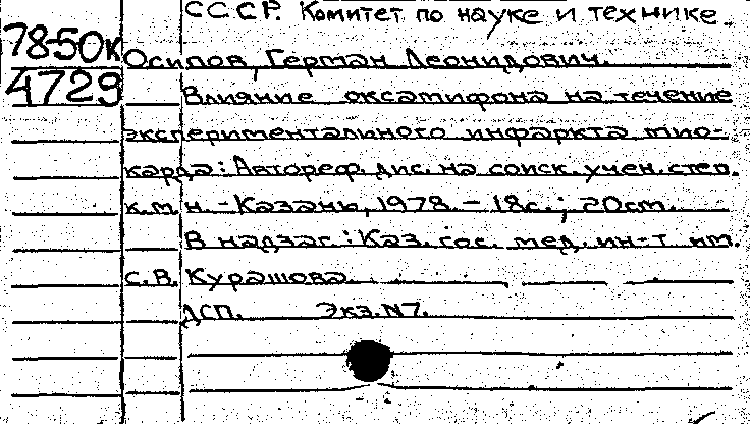 СССР. Комитет по науке и технике.
78-50к
Осипов, Герман Леонидович.
4729
Влияние оксатифона на течение
экспериментального инфаркта мио-
карда: Автореф. дис. на соиск. учен. степ.
к.м.н. - Казань, 1978. - 18с.; 20см.
В надзаг.: Каз. гос. мед. ин-т им.
С.В. Курашова.
ДСП. Экз. N7.